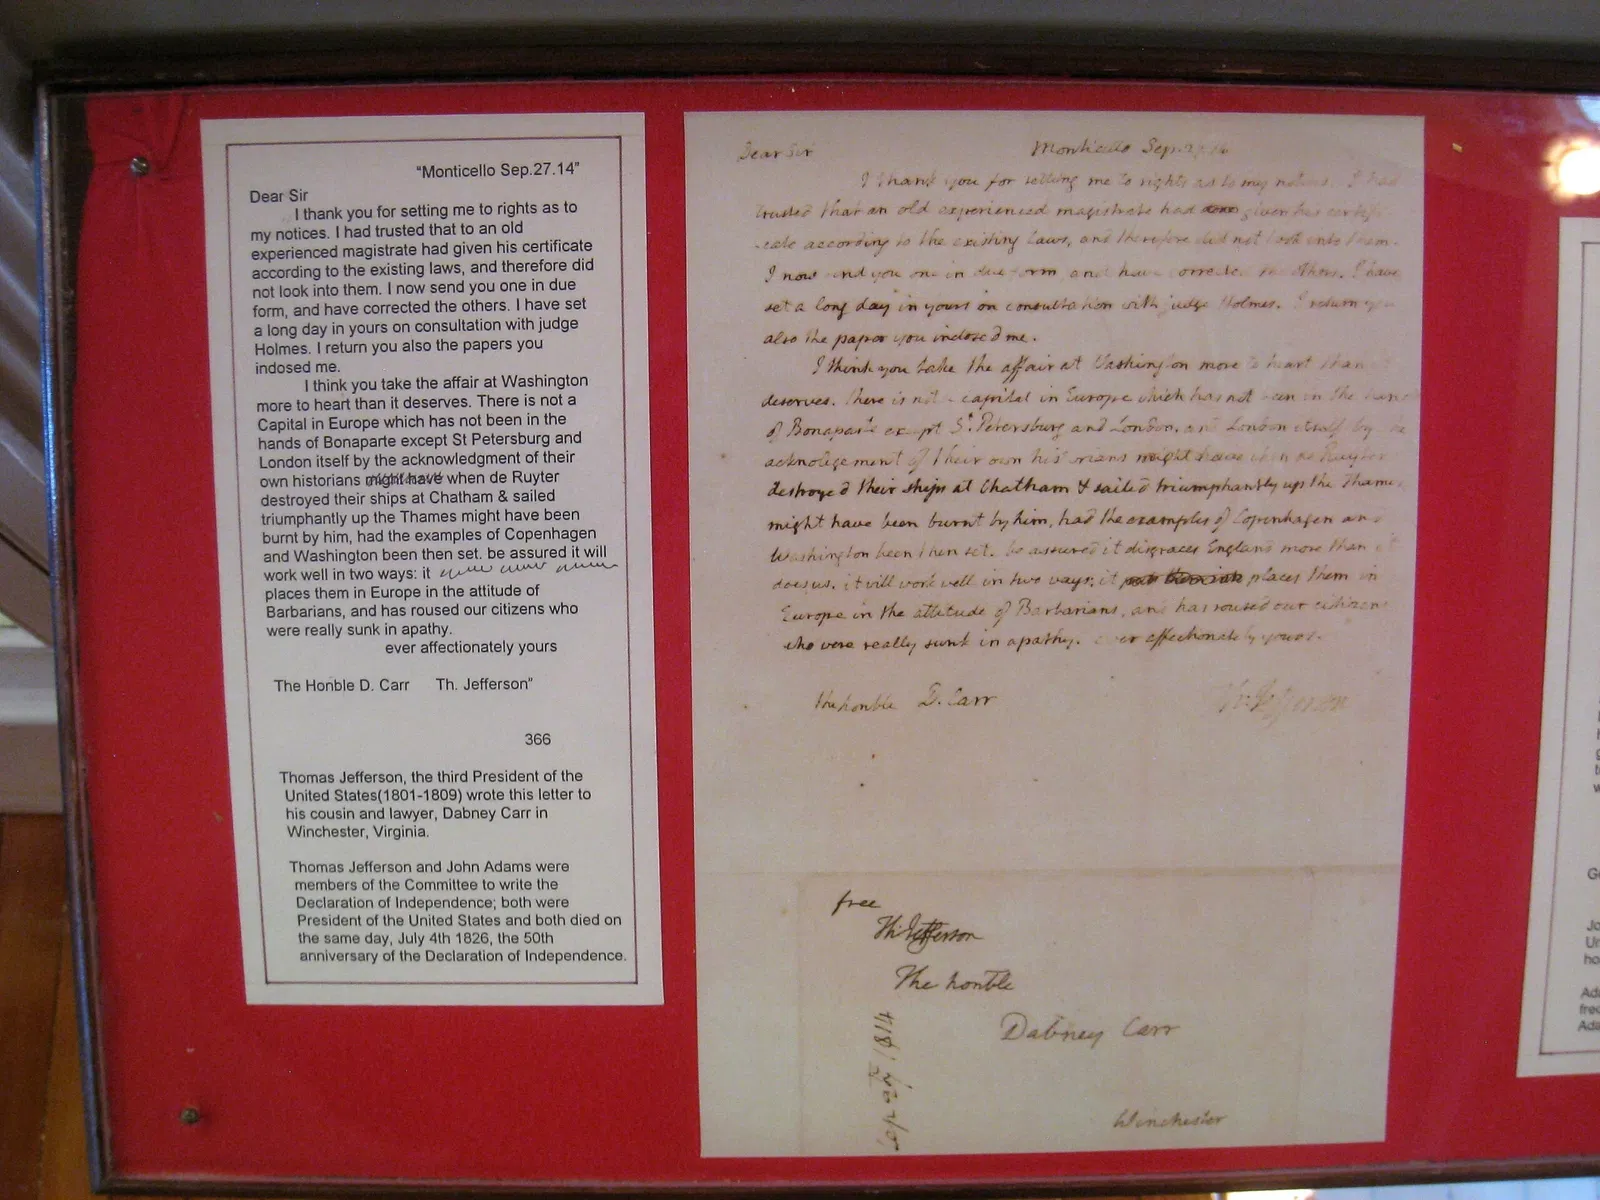 “Monticello Sep.27.14”
Dear Sir
I thank you for setting me to rights as to
my notices. I had trusted that to an old
experienced magistrate had given his certificate
according to the existing laws, and therefore did
not look into them. I now send you one in due
form, and have corrected the others. I have set
a long day in yours on consultation with judge
Holmes. I return you also the papers you
indosed me.
I think you take the affair at Washington
more to heart than it deserves. There is not a
Capital in Europe which has not been in the
hands of Bonaparte except St Petersburg and
London itself by the acknowledgment of their
own historians might have when de Ruyter
destroyed their ships at Chatham & sailed
triumphantly up the Thames might have been
burnt by him, had the examples of Copenhagen
and Washington been then set. be assured it will
work well in two ways: it
places them in Europe in the attitude of
Barbarians, and has roused our citizens who
were really sunk in apathy.
ever affectionately yours
The Honble D. Carr Th. Jefferson”
366
Thomas Jefferson, the third President of the
United States(1801-1809) wrote this letter to
his cousin and lawyer, Dabney Carr in
Winchester, Virginia.
Thomas Jefferson and John Adams were
members of the Committee to write the
Declaration of Independence; both were
President of the United States and both died on
the same day, July 4th 1826, the 50th
anniversary of the Declaration of Independence.
Dear Sir Monticello Sep.
I thank you for setting me to rights as to my notices. I had
trusted that an old experienced magistrate had given his certifi
-cate according to the existing laws, and therefore did not look into them.
I now send you one in due form and have corrected the others. I have
set a long day in yours on consultation with judge Holmes. I return you
also the paper you indosed me.
I think you take the affair at Washington more to heart than it
deserves. there is not a capital in Europe which has not been in the hands
of Bonaparte except St. Petersburg and London. and London itself by the
acknolegement of their own historians might have when de Ruyter
destroyed their ships at Chatham & sailed triumphantly up the Thames
might have been burnt by him, had the examples of Copenhagen and
Washington been then set. be assured it disgraces England more than it
does us. it will work well in two ways; it places them in
Europe in the attitude of Barbarians, and has roused our citizens
who were really sunk in apathy. ever affectionately yours.
the honble D. Carr Th: Jefferson
free
Th: Jefferson
The honble
Dabney Carr
1814
Winchester